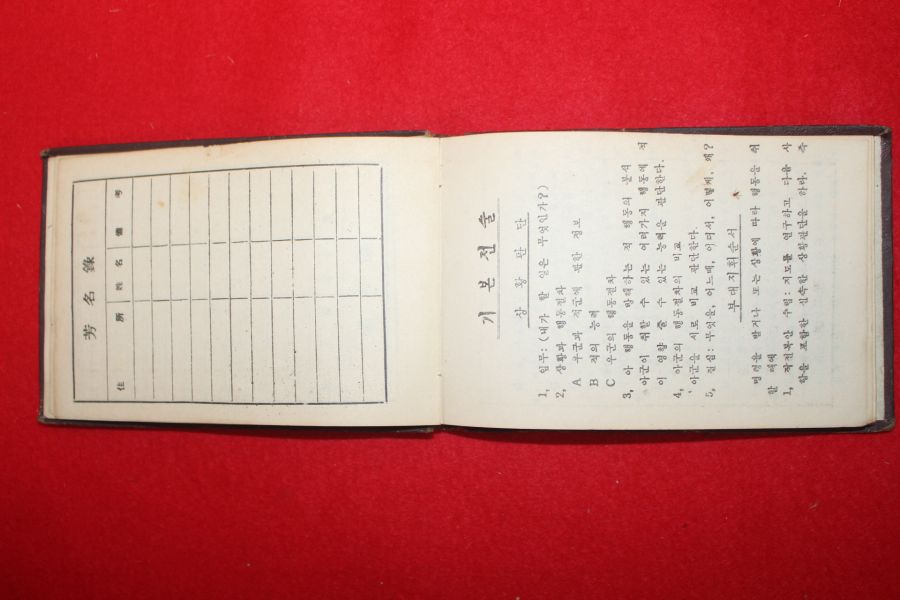 芳名錄
住所 姓名 備考
기본전술
상황판단
1, 임무: (내가 할 일은 무엇인가?)
2, 상황과 행동절차
A 우군과 적군에 관한 정보
B 적의 능력
C 우군의 행동절차
3, 아 행동을 방해하는 적 행동의 분석
아군이 취할 수 있는 여러가지 행동에 적
이 영향 줄 수 있는 능력을 판단한다.
4, 아군의 행동절차의 비교
아군을 서로 비교 판단한다.
5, 결심: 무엇을, 어느때, 어디서, 어떻게, 왜?
부대지휘순서
명령을 받거나 또는 상황에 따라 행동을 취
할 때에
1, 작전복안 수립: 지도를 연구하고 다음 사
항을 포함한 신속한 상황판단을 하라. 즉